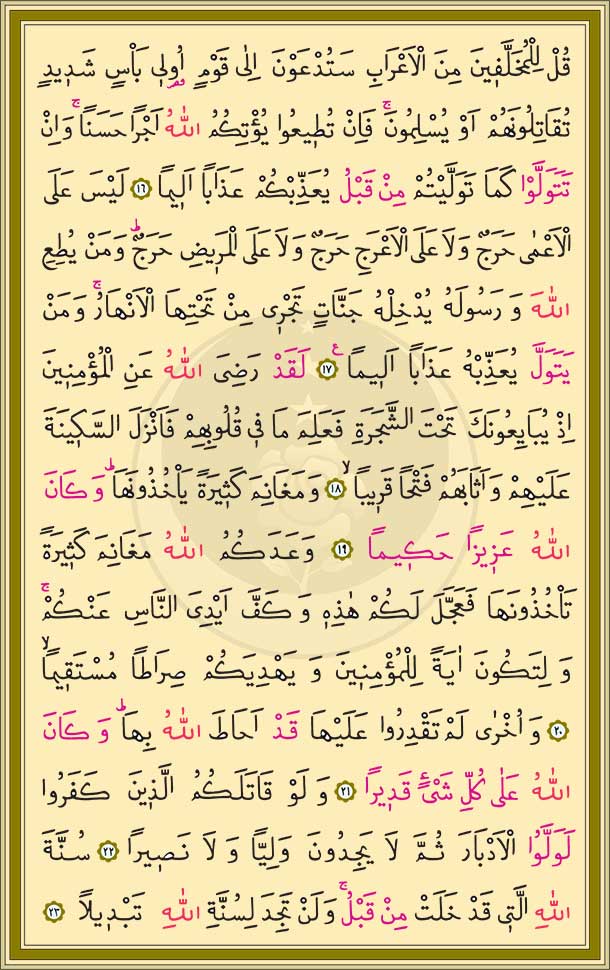 قُلْ لِلْمُخَلَّفٖينَ مِنَ الْاَعْرَابِ سَتُدْعَوْنَ اِلٰى قَوْمٍ اُو۬لٖي بَاْسٍ شَدٖيدٍ
تُقَاتِلُونَهُمْ اَوْ يُسْلِمُونَۚ فَاِنْ تُطٖيعُوا يُؤْتِكُمُ اللّٰهُ اَجْرًا حَسَنًاۚ وَاِنْ
تَتَوَلَّوْا كَمَا تَوَلَّيْتُمْ مِنْ قَبْلُ يُعَذِّبْكُمْ عَذَابًا اَلٖيمًا ﴿١٦﴾ لَيْسَ عَلَى
الْاَعْمٰى حَرَجٌ وَلَا عَلَى الْاَعْرَجِ حَرَجٌ وَلَا عَلَى الْمَرٖيضِ حَرَجٌؕ وَمَنْ يُطِعِ
اللّٰهَ وَرَسُولَهُ يُدْخِلْهُ جَنَّاتٍ تَجْرٖي مِنْ تَحْتِهَا الْاَنْهَارُۚ وَمَنْ
يَتَوَلَّ يُعَذِّبْهُ عَذَابًا اَلٖيمًا ﴿١٧﴾ لَقَدْ رَضِيَ اللّٰهُ عَنِ الْمُؤْمِنٖينَ
اِذْ يُبَايِعُونَكَ تَحْتَ الشَّجَرَةِ فَعَلِمَ مَا فٖي قُلُوبِهِمْ فَاَنْزَلَ السَّكٖينَةَ
عَلَيْهِمْ وَاَثَابَهُمْ فَتْحًا قَرٖيبًاۙ ﴿١٨﴾ وَمَغَانِمَ كَثٖيرَةً يَاْخُذُونَهَاؕ وَكَانَ
اللّٰهُ عَزٖيزًا حَكٖيمًا ﴿١٩﴾ وَعَدَكُمُ اللّٰهُ مَغَانِمَ كَثٖيرَةً
تَاْخُذُونَهَا فَعَجَّلَ لَكُمْ هٰذِهٖ وَكَفَّ اَيْدِيَ النَّاسِ عَنْكُمْۚ
وَلِتَكُونَ اٰيَةً لِلْمُؤْمِنٖينَ وَيَهْدِيَكُمْ صِرَاطًا مُسْتَقٖيمًاۙ
﴿٢٠﴾ وَاُخْرٰى لَمْ تَقْدِرُوا عَلَيْهَا قَدْ اَحَاطَ اللّٰهُ بِهَاؕ وَكَانَ
اللّٰهُ عَلٰى كُلِّ شَيْءٍ قَدٖيرًا ﴿٢١﴾ وَلَوْ قَاتَلَكُمُ الَّذٖينَ كَفَرُوا
لَوَلَّوُا الْاَدْبَارَ ثُمَّ لَا يَجِدُونَ وَلِيًّا وَلَا نَصٖيرًا ﴿٢٢﴾ سُنَّةَ
اللّٰهِ الَّتٖي قَدْ خَلَتْ مِنْ قَبْلُۚ وَلَنْ تَجِدَ لِسُنَّةِ اللّٰهِ تَبْدٖيلًا ﴿٢٣﴾